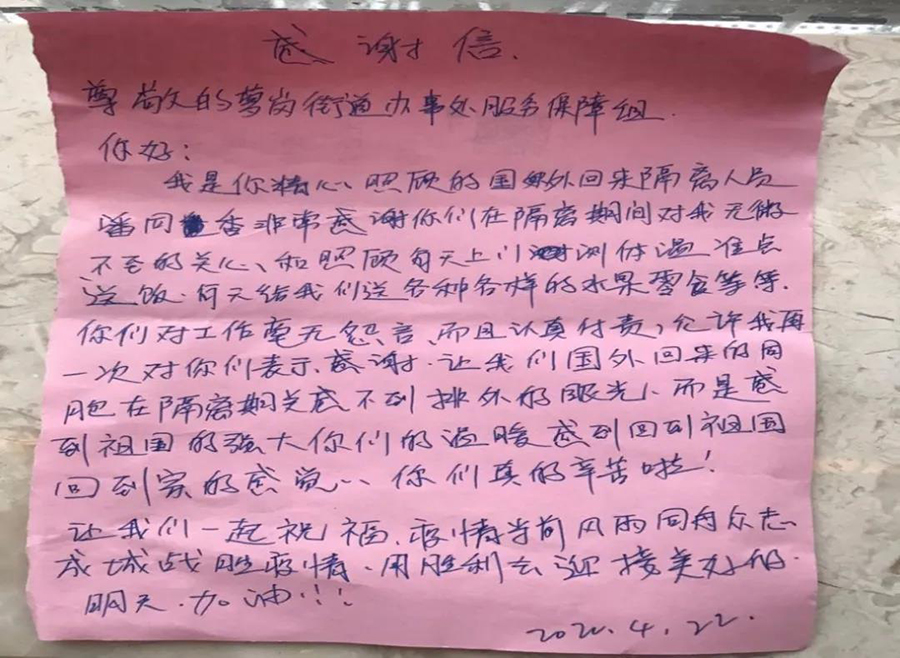 感谢信.
尊敬的萝岗街道办事处服务保障组.
你好：
我是你精心、照顾的国外回来隔离人员
潘同香非常感谢你们在隔离期间对我无微
不至的关心、和照顾每天上门测体温准点
送饭.每天给我们送各种各样的水果零食等等.
你们对工作毫无怨言、而且认真付责，允许我再
一次对你们表示、感谢.让我们国外回来的同
胞在隔离期关感不到排外的眼光、而是感
到祖国的强大你们的温暖感到回到祖国
回到家的感觉、、你们真的辛苦啦！
让我们一起祝福.疫情当前风雨同舟众志
成城战胜疫情.用胜利去迎接美好的.
明天.加油！！！
2020.4.22.